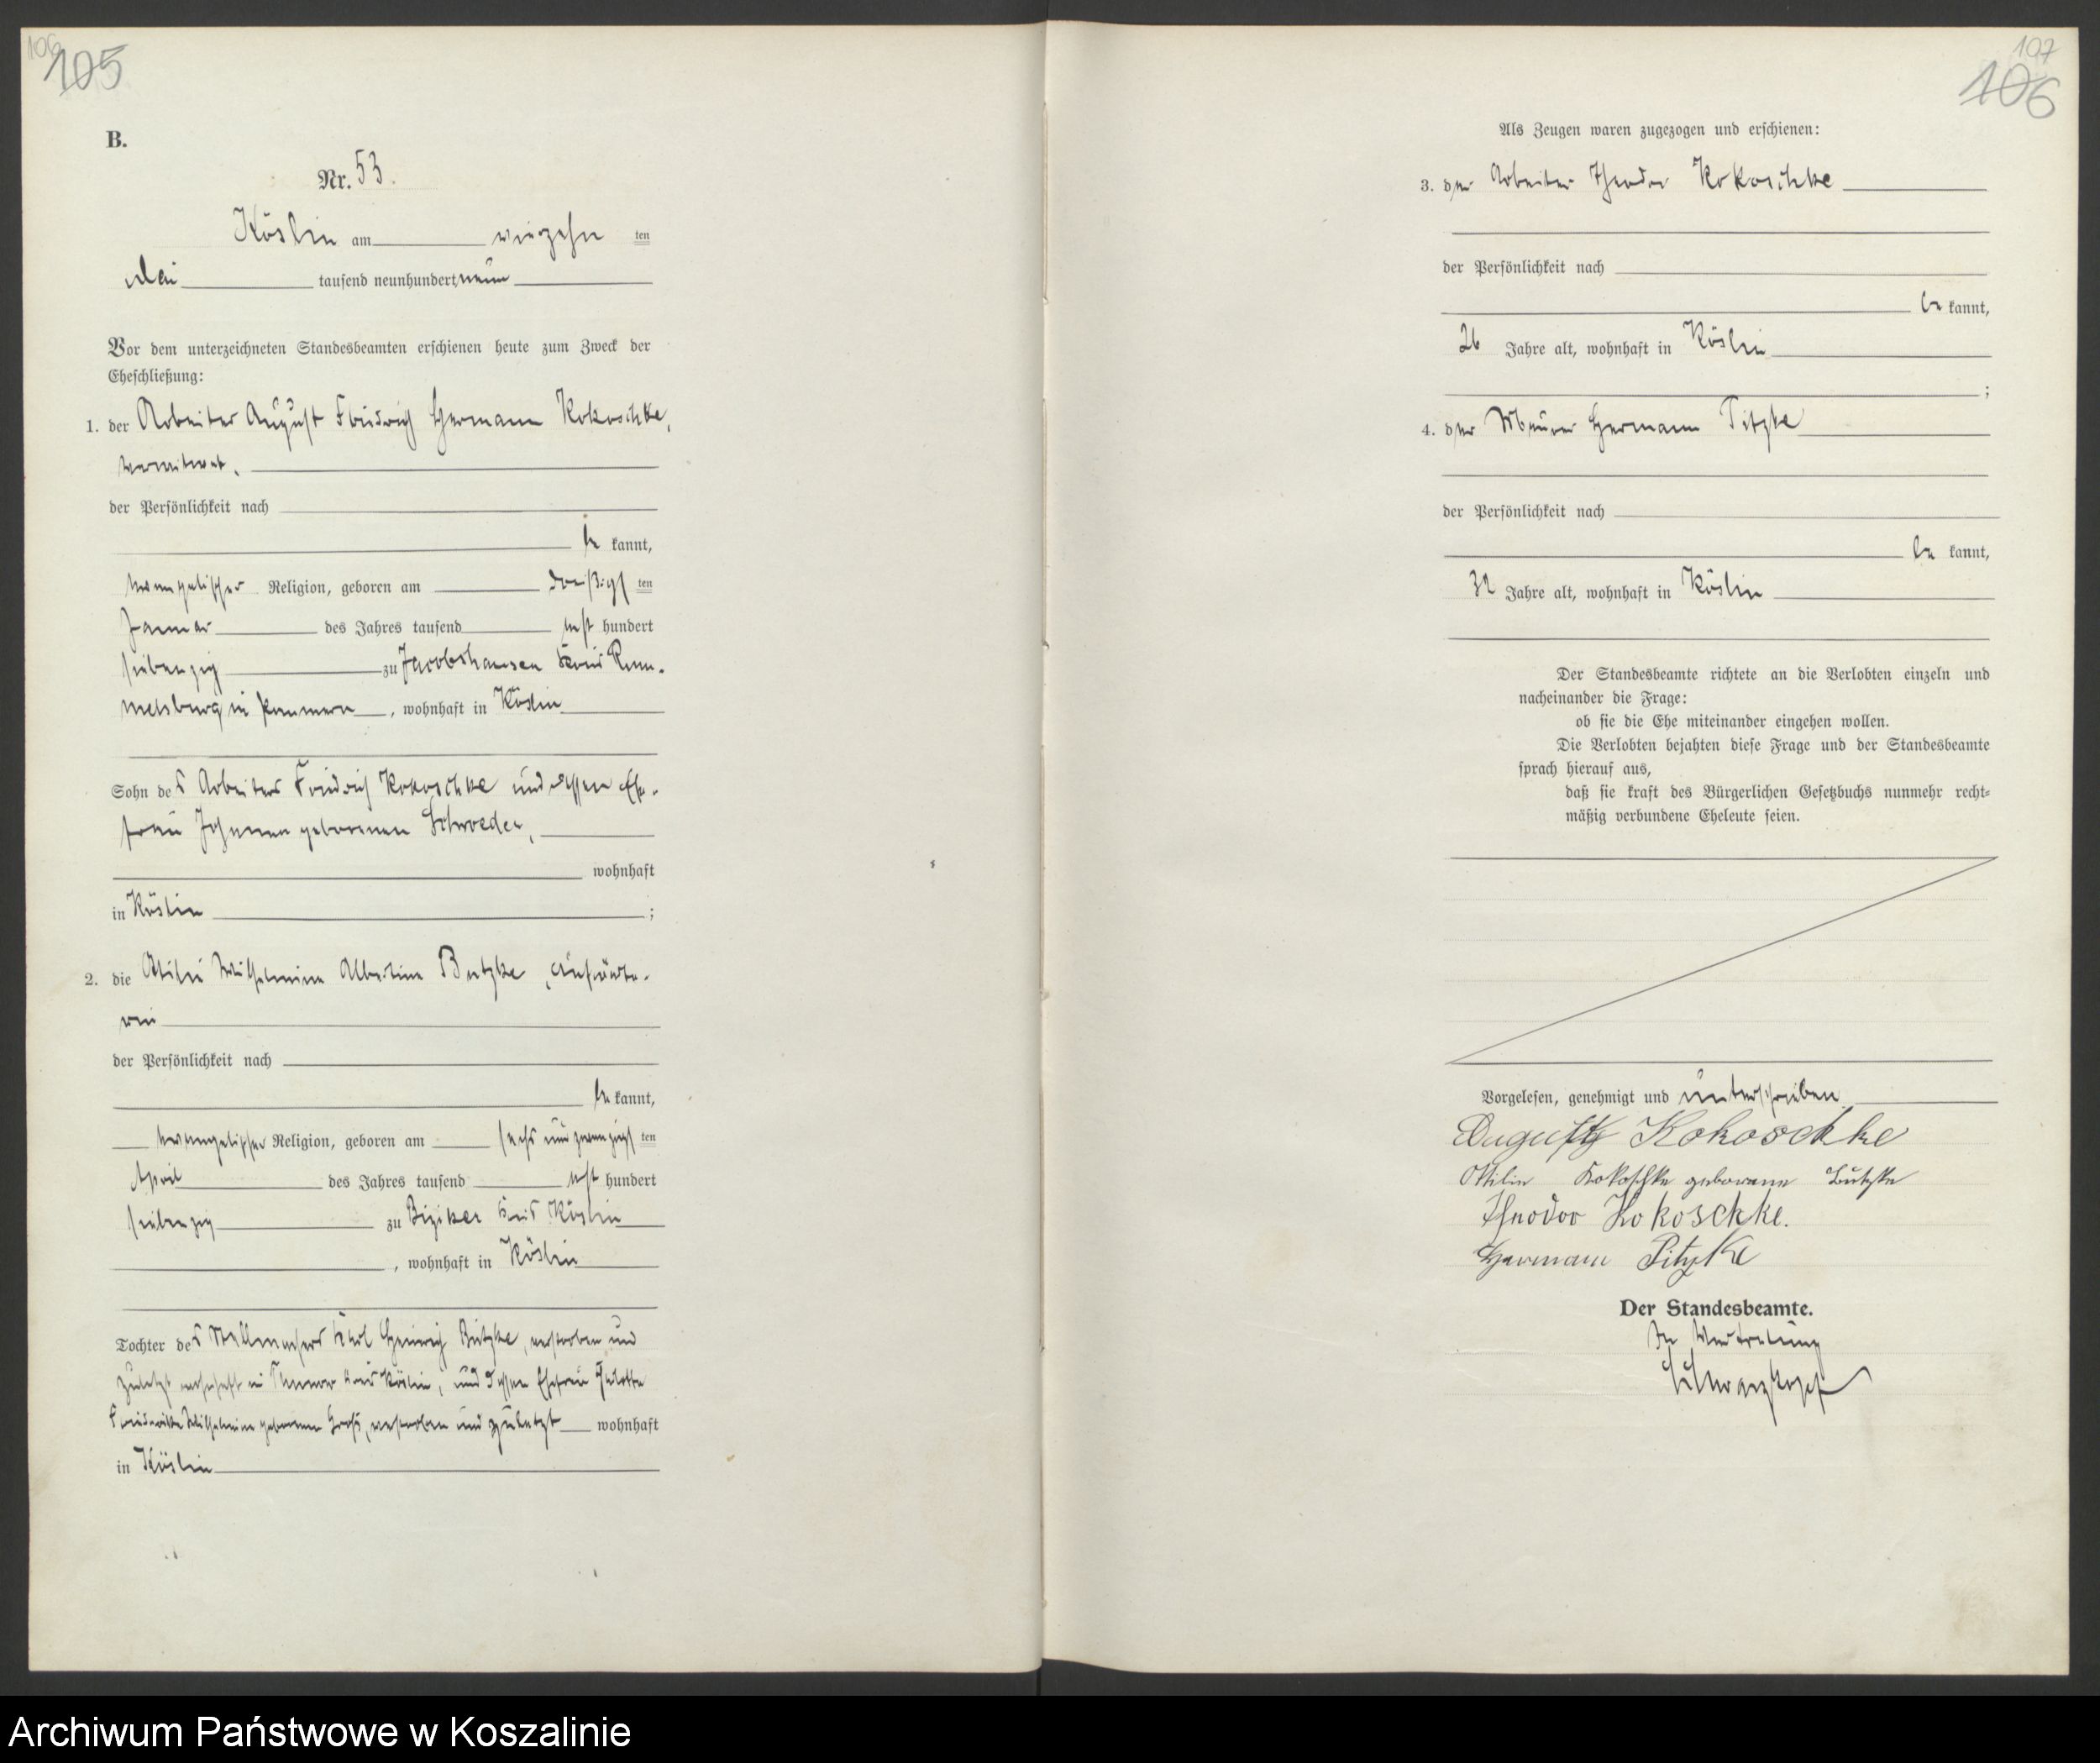 106
105
B.
Nr. 53.
Köslin am vierzehn ten
Mai tausend neunhundert neun
Vor dem unterzeichneten Standesbeamten erschienen heute zum Zweck der
Eheschließung:
1. der Arbeiter August Friedrich Hermann Kokoschke,
verwitwet,
der Persönlichkeit nach
be kannt,
evangelischer Religion, geboren am dreißigs ten
Januar des Jahres tausend acht hundert
siebenzig zu Jacobshausen Kreis Rum-
melsburg in Pommern, wohnhaft in Köslin
Sohn des Arbeiters Friedrich Kokoschke und dessen Ehe-
frau Johanna geborenen Schroeder,
wohnhaft
in Köslin ;
2. die Otilie Wilhelmine Albertine Butzke, Aufwärte-
rin
der Persönlichkeit nach
be kannt,
evangelischer Religion, geboren am sechs und zwanzigs ten
April des Jahres tausend acht hundert
siebenzig zu Biziker Kreis Köslin
, wohnhaft in Köslin
Tochter des Stellmachers Karl Heinrich Butzke, verstorben und
zuletzt wohnhaft in Kreis Köslin, und dessen Ehefrau
Friederike Wilhelmine geborenen Groß, verstorben und zuletzt wohnhaft
in Köslin
107
106
Als Zeugen waren zugezogen und erschienen:
3. der Arbeiter Theodor Kokoschke
der Persönlichkeit nach
be kannt,
26 Jahre alt, wohnhaft in Köslin
;
4. der Maurer Hermann Titzke
der Persönlichkeit nach
be kannt,
32 Jahre alt, wohnhaft in Köslin
Der Standesbeamte richtete an die Verlobten einzeln und
nacheinander die Frage:
ob sie die Ehe miteinander eingehen wollen.
Die Verlobten bejahten diese Frage und der Standesbeamte
sprach hierauf aus,
daß sie kraft des Bürgerlichen Gesetzbuchs nunmehr recht-
mäßig verbundene Eheleute seien.
Vorgelesen, genehmigt und unterschrieben
August Kokoschke
Ottilie Kokoschke geborene Butzke
Theodor Kokoschke.
Hermann Titzke
Der Standesbeamte.
In Vertretung
Schwarzkopf
Archiwum Państwowe w Koszalinie